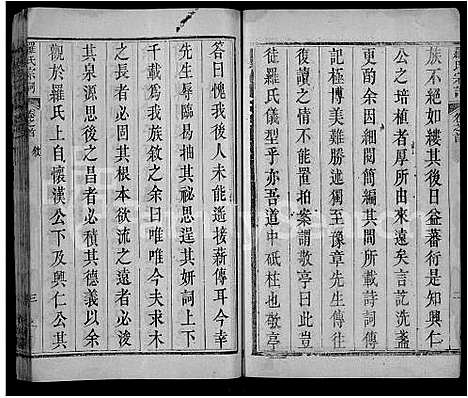 族不絕如縷其後日益蕃衍是興仁
公之培植者厚所由來遠矣言訖洗盞
更酌相與細閱簡編其間所載詩詞傳
記極博美難勝述獨至豫章先生傳往
復讀之情不能置拍案謂敬亭曰曷豈
徒羅氏儀型乎亦吾道中砥柱也敬亭
答曰愧我後人未能遥接薪傳耳今幸
先生辱臨易抽其祕思逞其妍詞上下
千載爲我族敘之余不敏以爲今夫求木
之長者必固其根本欲流之遠者必浚
其泉源思後之昌者必積其德義以余
觀於羅氏上自懷漢公下及興仁公其
羅氏宗詞
卷之首
敘
三